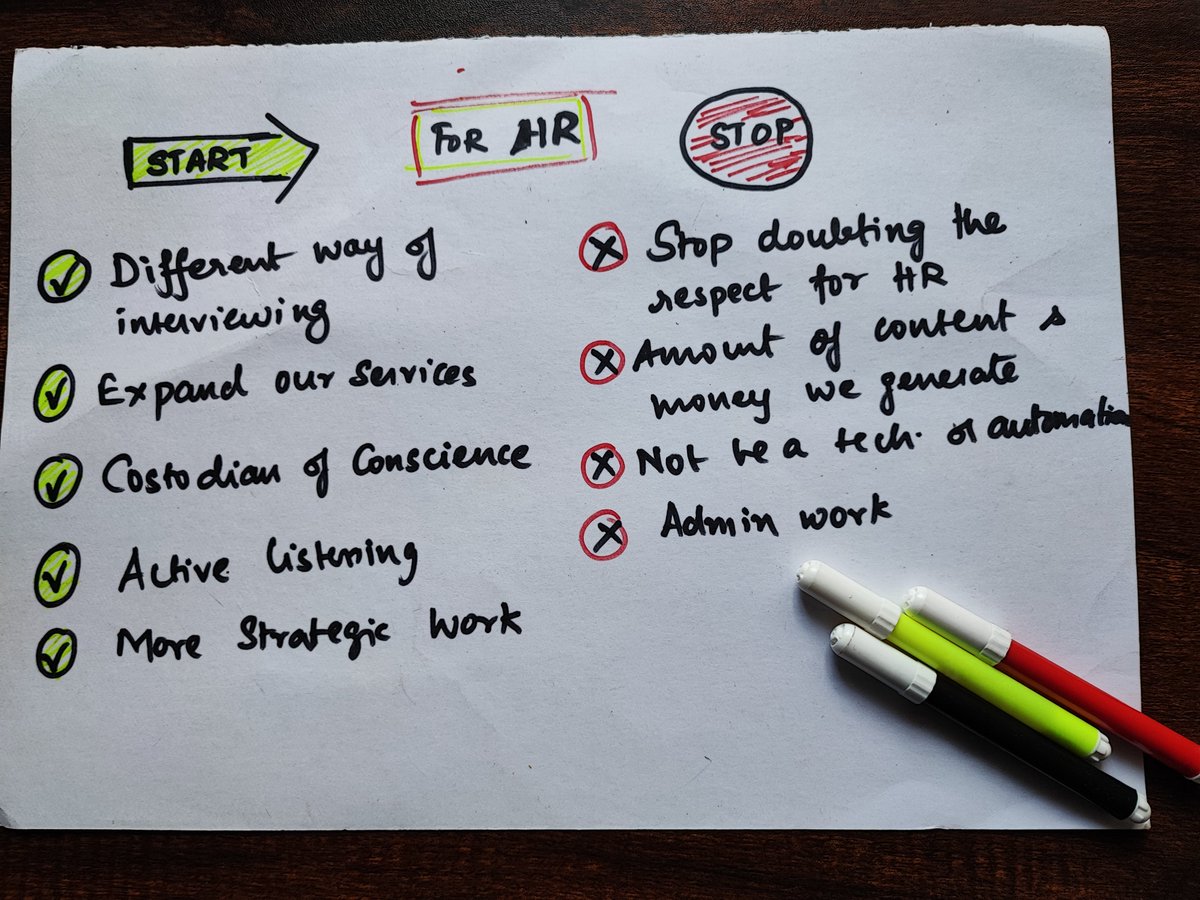 START
FOR HR
STOP
Different way of
interviewing
Expand our services
Costodian of Conscience
Active listening
More Strategic work
Stop doubting the
respect for HR
Amount of content &
money we generate
Not be a tech. or automation
Admin work